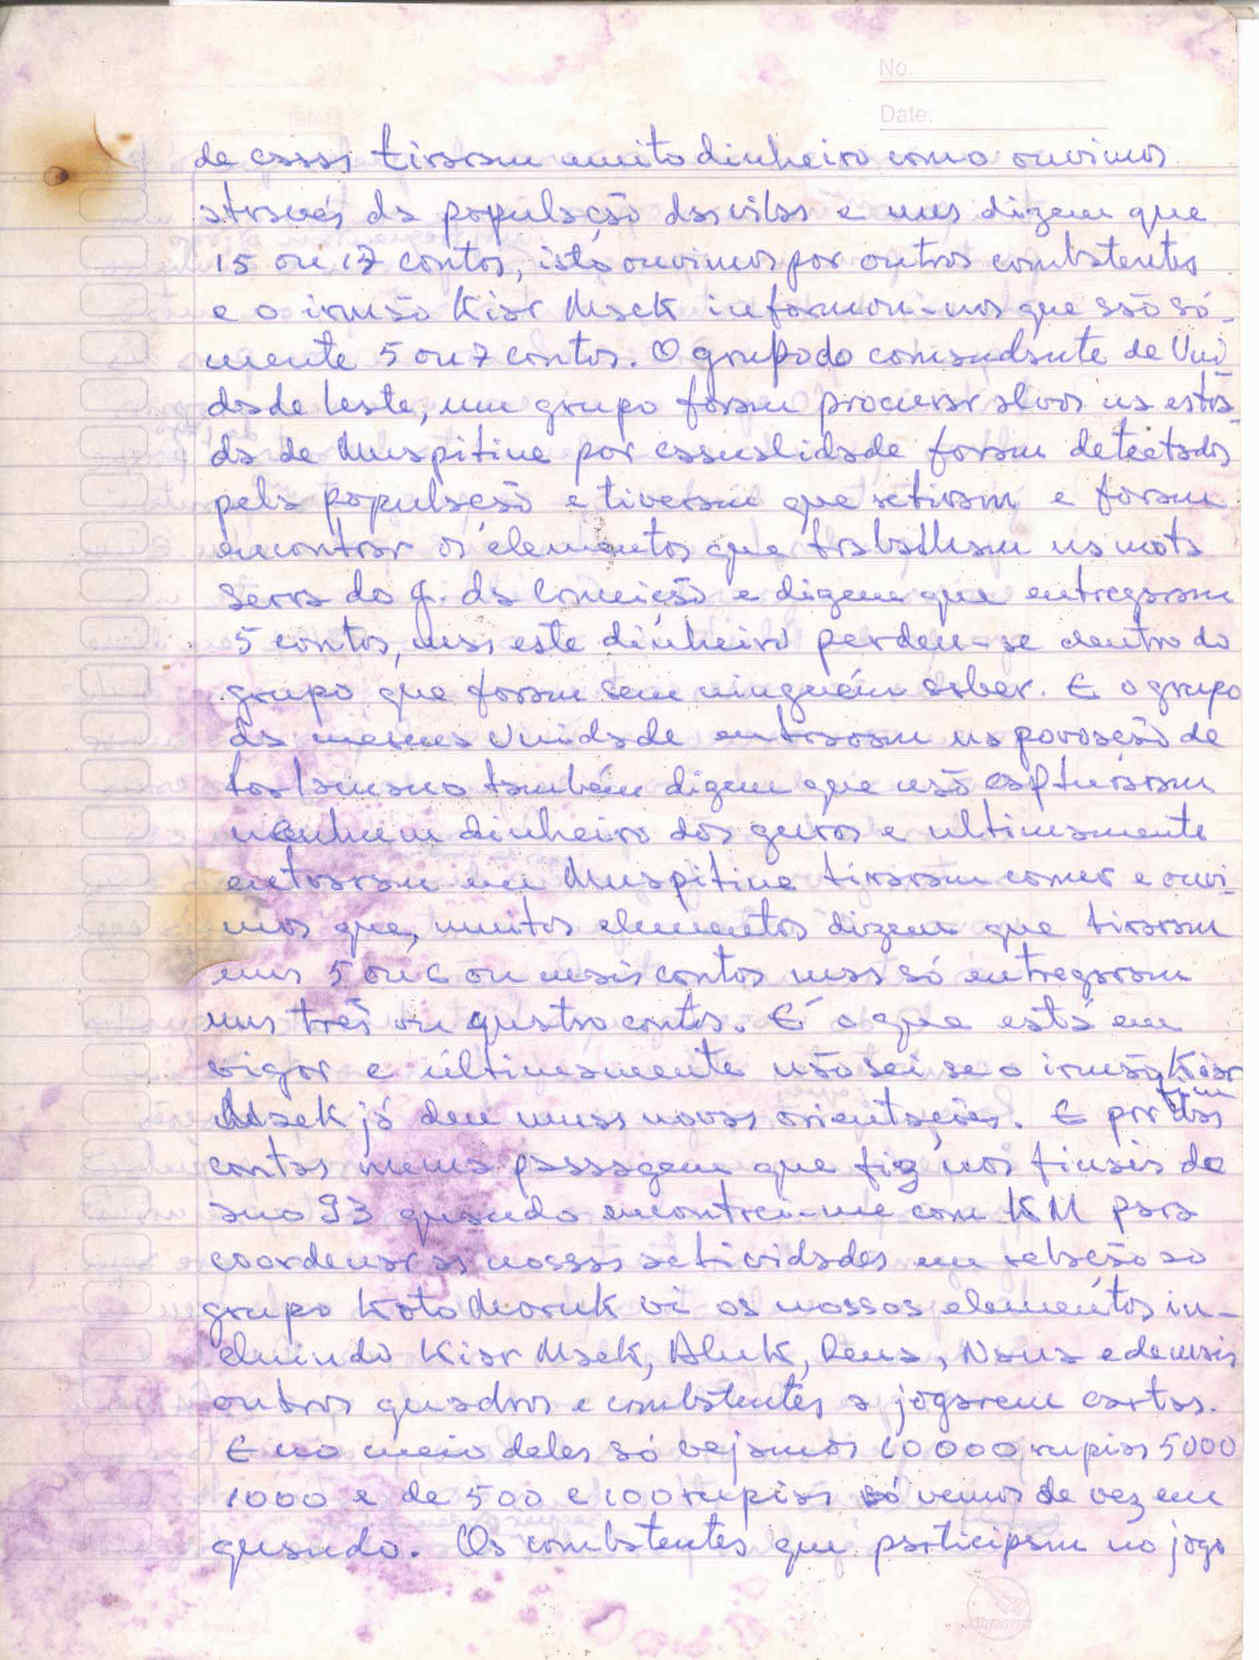 No.
Date.
de casas tiraram muito dinheiro como ouvimos
através da população das vilas e uns dizem que
15 ou 17 contos, isto ouvimos por outros combatentes
e o irmão Kiar Maek informou-nos que são só-
mente 5 ou 7 contos. O grupo do comandante de Uni-
dade leste, um grupo foram procurar alvos na estra-
da de Muapitine por casualidade foram detectados
pela população e tiveram que retiram e foram
encontrar os elementos que trabalham na mota
serra do g. da Conceição e dizem que entregaram
5 contos, mas este dinheiro perdeu-se dentro do
grupo que foram sem ninguém saber. E o grupo
da mesma Unidade entraram na povoação de
também dizem que não capturaram
nenhum dinheiro dos guros e ultimamente
entraram em Muapitine tiraram comer e ouvi-
mos que, muitos elementos dizem que tiraram
uns 5 ou 6 ou mais contos mas só entregaram
uns três ou quatro contos. É o que está em
vigor e últimamente não sei se o irmão Kiar
Maek já deu umas novas orientações. E por fim das
contas numa passagem que fiz nos finais do
ano 93 quando encontrei-me com KM para
coordenar as nossas actividades em relação ao
grupo Koto Moruk vi os nossos elementos in-
cluindo Kiar Maek, Aluk, Rena, Nana e demais
outros quadros e combatentes a jogarem cartas.
E no meio deles só vejamos 10000 rupias 5000
1000 e de 500 e 100 rupias só vemos de vez em
quando. Os combatentes que participam no jogo